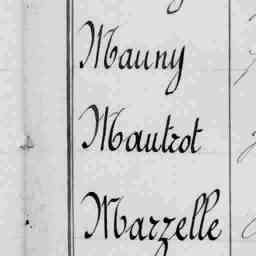 Mauny
Mautrot
Marzelle